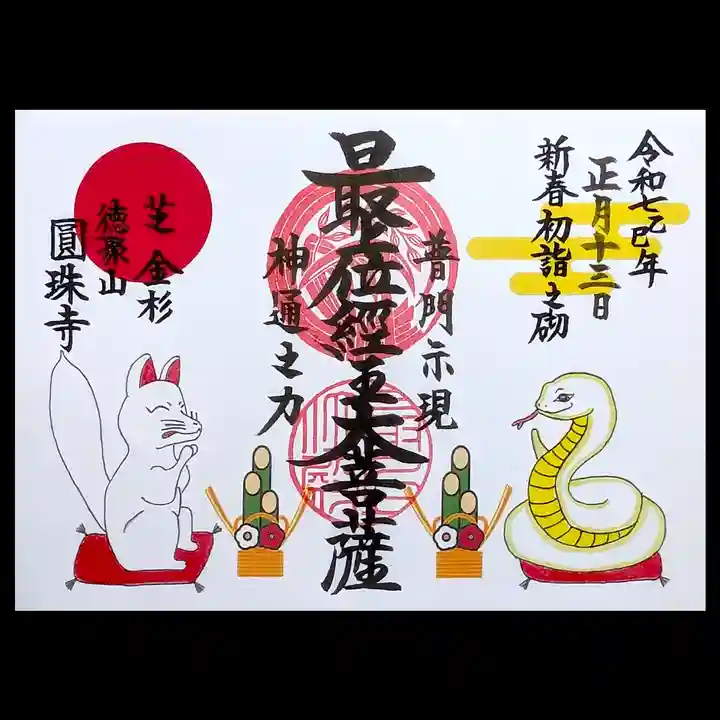 令和七乙巳年
正月十三日
新春初詣之砌
普門示現
最上位經王大菩薩
神通之力
芝金杉
徳聚山
圓珠寺